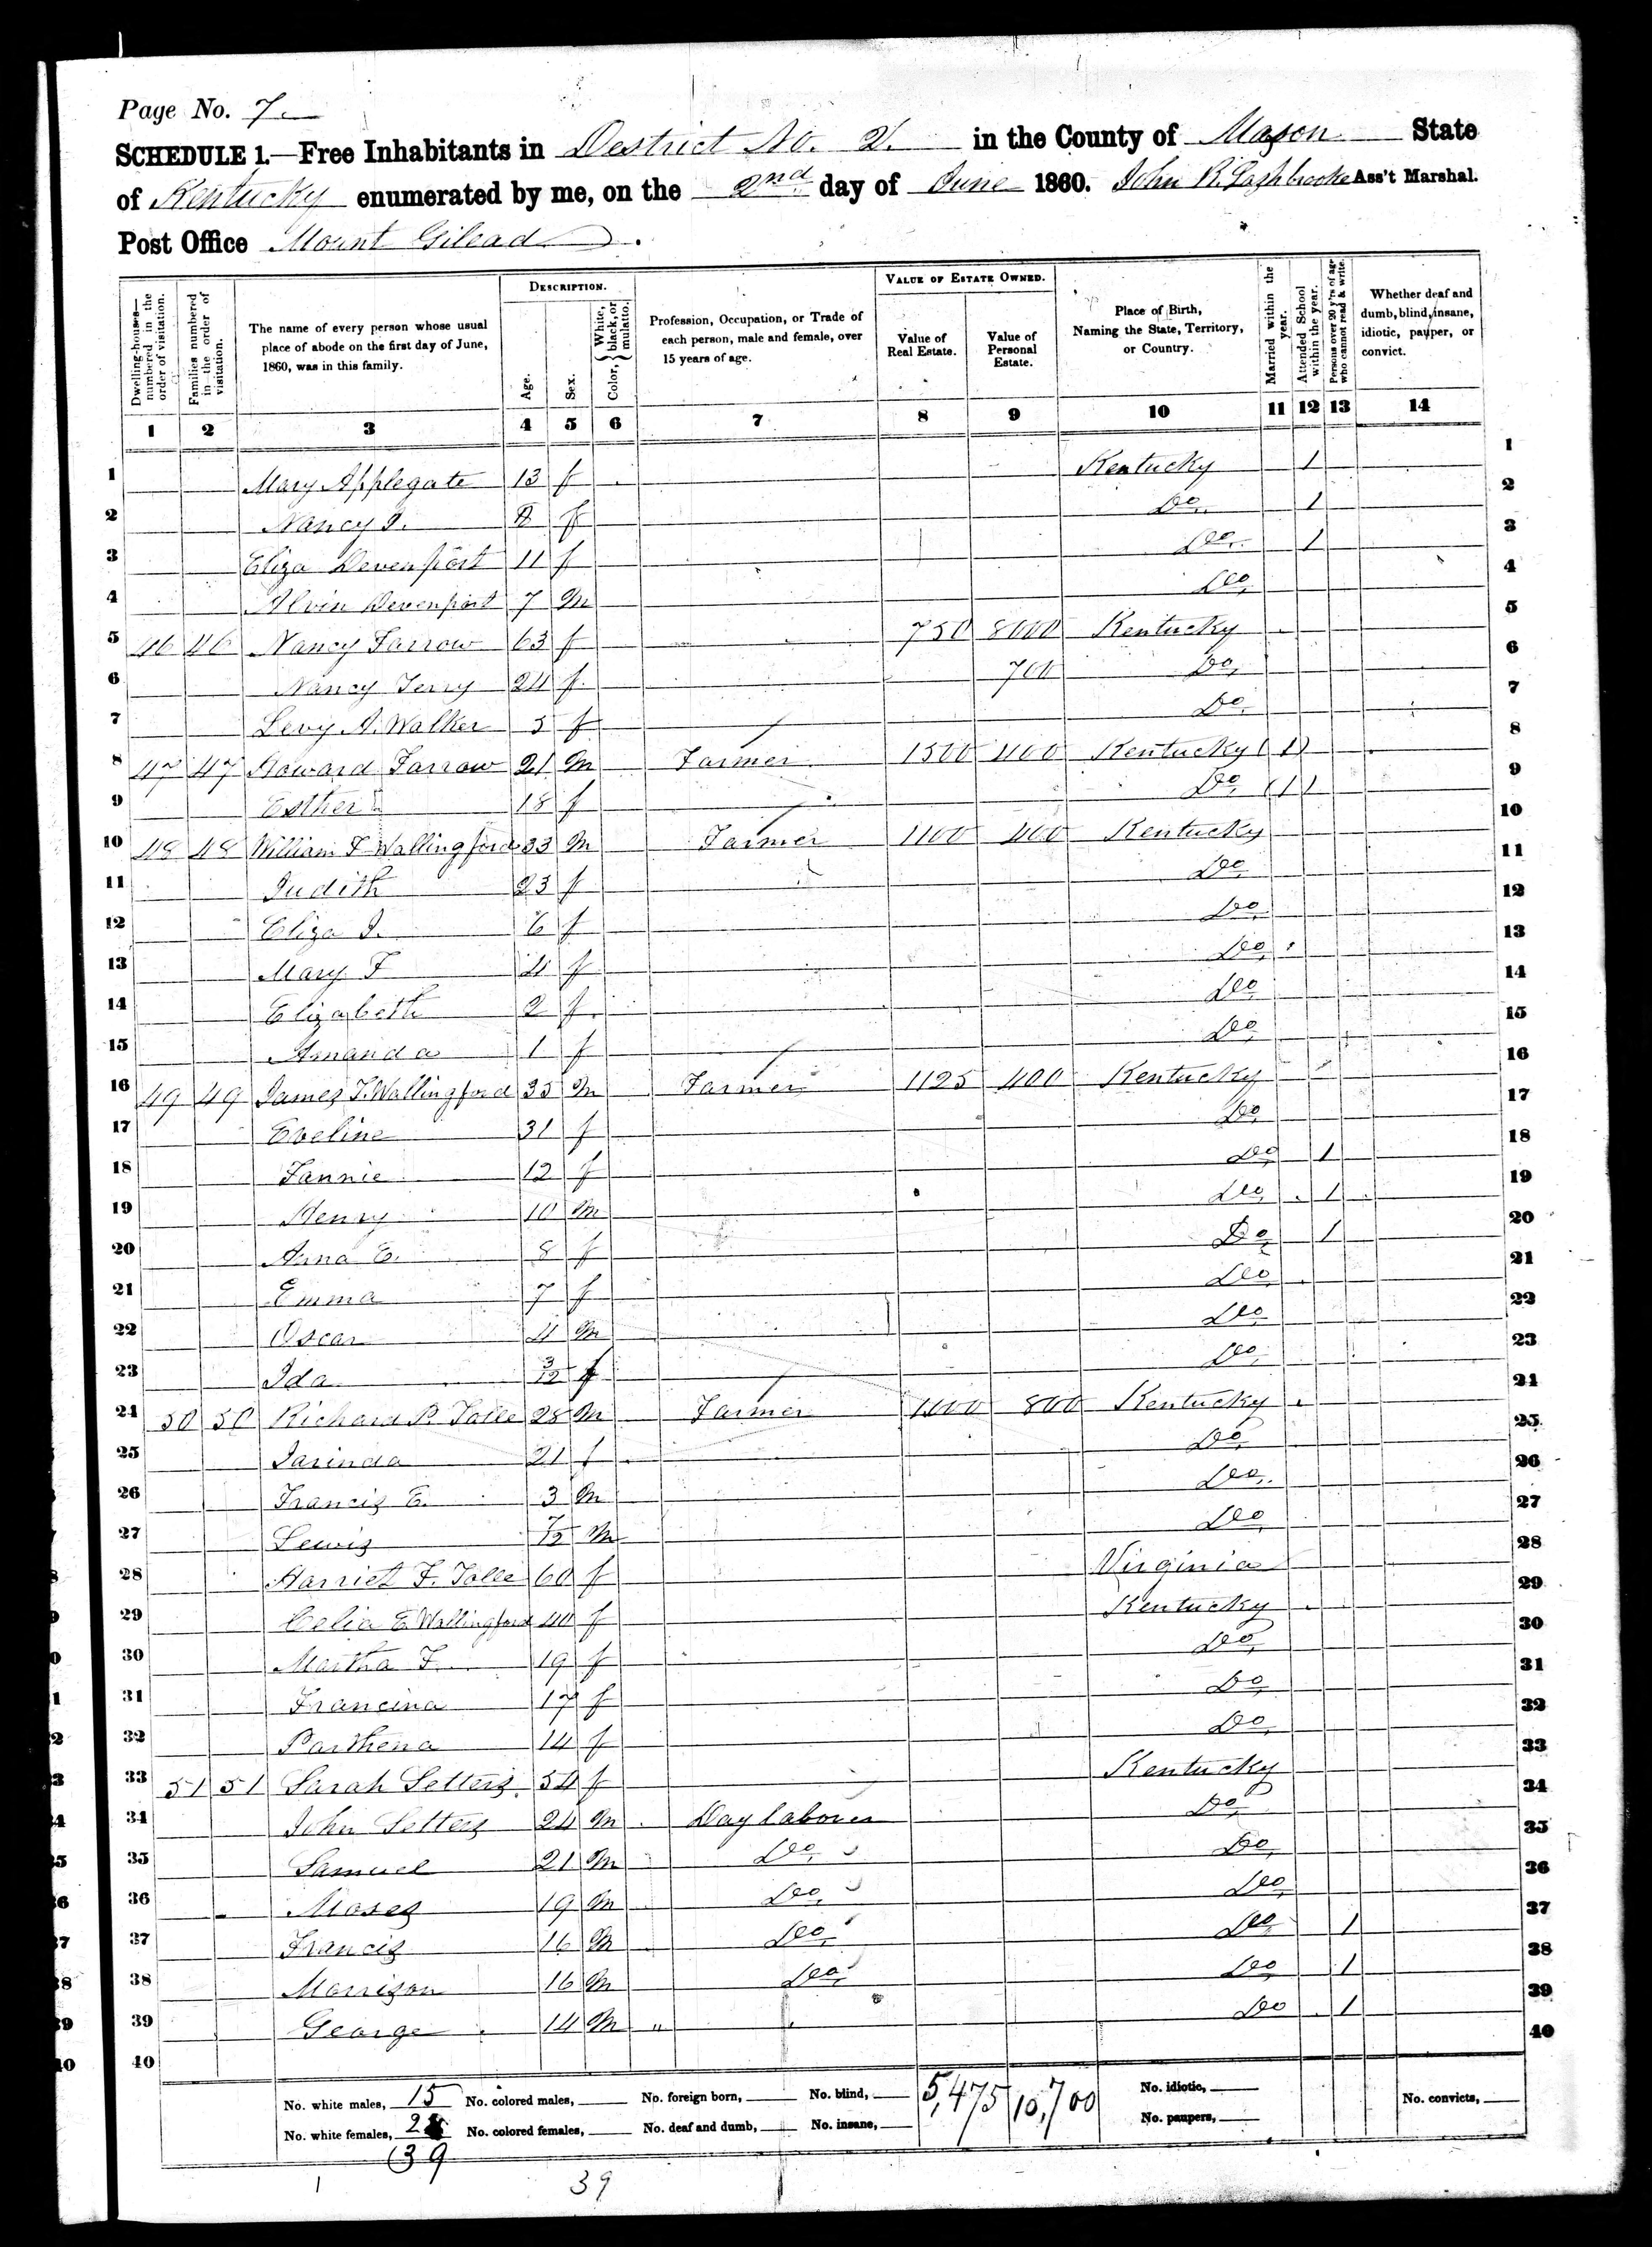 Page No. 7.
SCHEDULE 1.—Free Inhabitants in District No. 2. in the County of Mason State
of Kentucky enumerated by me, on the 2nd day of June 1860. John R. Lashbrooke Ass't Marshal.
Post Office Mount Gilead.
Dwelling-houses—numbered in the order of visitation.
Families numbered in the order of visitation.
The name of every person whose usual place of abode on the first day of June, 1860, was in this family.
DESCRIPTION.
Age.
Sex.
Color, { White, black, or mulatto.
Profession, Occupation, or Trade of each person, male and female, over 15 years of age.
VALUE OF ESTATE OWNED.
Value of Real Estate.
Value of Personal Estate.
Place of Birth, Naming the State, Territory, or Country.
Married within the year.
Attended School within the year.
Persons over 20 y'rs of age who cannot read & write.
Whether deaf and dumb, blind, insane, idiotic, pauper, or convict.
1 2 3 4 5 6 7 8 9 10 11 12 13 14
1 Mary Applegate 13 f Kentucky 1 1
2 Nancy J. 8 f Do. 1 2
3 Eliza Devenport 11 f Do. 1 3
4 Alvin Devenport 7 M Do, 4
5 46 46 Nancy Farrow 63 f 750 8000 Kentucky 5
6 Nancy Terry 24 f 700 Do, 6
7 Levy A. Walker 5 f Do, 7
8 47 47 Howard Farrow 21 M Farmer 1500 400 Kentucky (1) 8
9 Esther 18 f Do, (1) 9
10 48 48 William F Wallingford 33 M Farmer 1100 400 Kentucky 10
11 Judith 23 f Do, 11
12 Eliza J. 6 f Do, 12
13 Mary F 4 f Do, 13
14 Elizabeth 2 f Do, 14
15 Amanda 1 f Do, 15
16 49 49 James T. Wallingford 35 M Farmer 1125 400 Kentucky 16
17 Eveline 31 f Do, 17
18 Fannie 12 f Do, 1 18
19 Henry 10 M Do, 1 19
20 Anna E. 8 f Do, 1 20
21 Emma 7 f Do, 21
22 Oscar 4 M Do, 22
23 Ida 3/12 f Do, 23
24 50 50 Richard P. Tolle 28 M Farmer 1000 800 Kentucky 24
25 Jarinda 21 f Do, 25
26 Francis E. 3 M Do, 26
27 Lewis 7/12 M Do, 27
28 Harriet F. Tolle 60 f Virginia 28
29 Celia E Wallingford 40 f Kentucky 29
30 Martha F. 19 f Do, 30
31 Francina 17 f Do, 31
32 Parthena 14 f Do, 32
33 51 51 Sarah Setters 54 f Kentucky 33
34 John Setters 24 M Day laborer Do, 34
35 Samuel 21 M Do, Do, 35
36 Moses 19 M Do, Do, 36
37 Francis 16 M Do, Do, 1 37
38 Morrison 16 M Do, Do, 1 38
39 George 14 M " Do 1 39
40 40
No. white males, 15 No. colored males, No. foreign born, No. blind, 5,475 10,700 No. idiotic, No. convicts,
No. white females, 24 No. colored females, No. deaf and dumb, No. insane, No. paupers,
(39
39